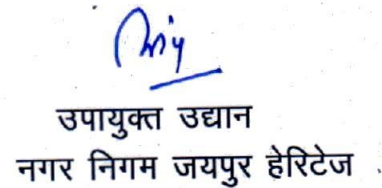 उपायुक्त उद्यान
नगर निगम जयपुर हेरिटेज